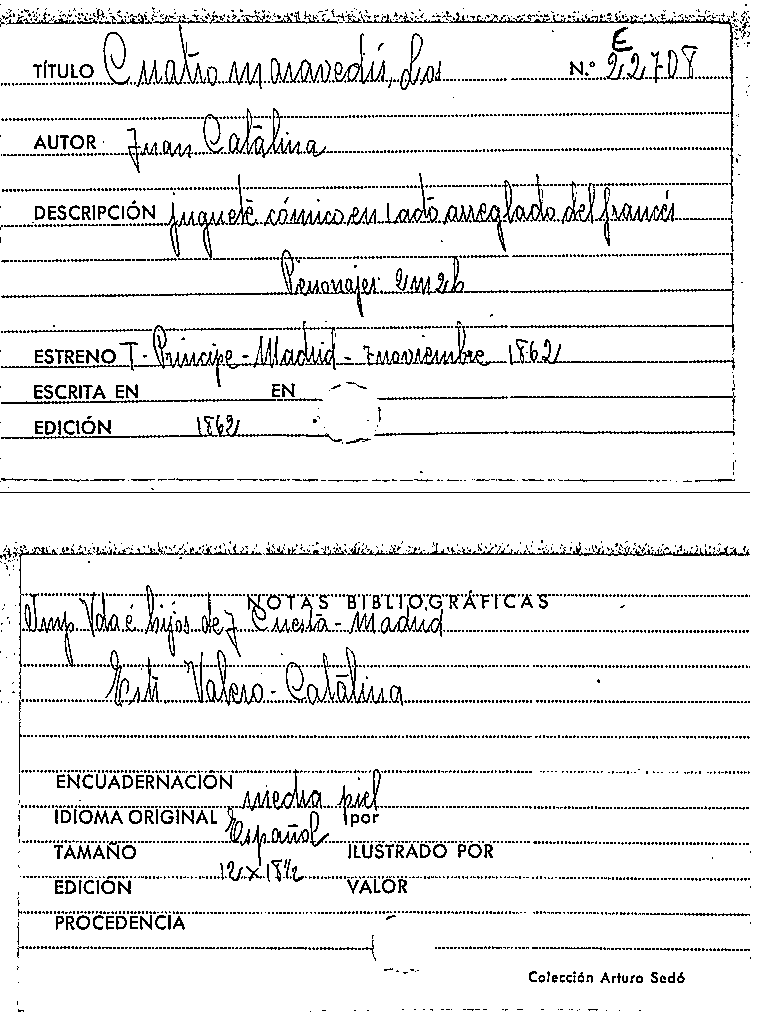 E
TÍTULO Cuatro maravedís, Los N.º 22708
AUTOR Juan Catalina
DESCRIPCIÓN juguete cómico en 1 acto arreglado del francés
Personajes 2m2h
ESTRENO T. Príncipe - Madrid - 7 noviembre 1862
ESCRITA EN EN
EDICIÓN 1862
NOTAS BIBLIOGRÁFICAS
Imp Vda é hijos de J Cuesta - Madrid
Est: Valero - Catalina
ENCUADERNACIÓN media piel
IDIOMA ORIGINAL Español por
TAMAÑO 12 x 18½ ILUSTRADO POR
EDICIÓN VALOR
PROCEDENCIA
Colección Arturo Sedó